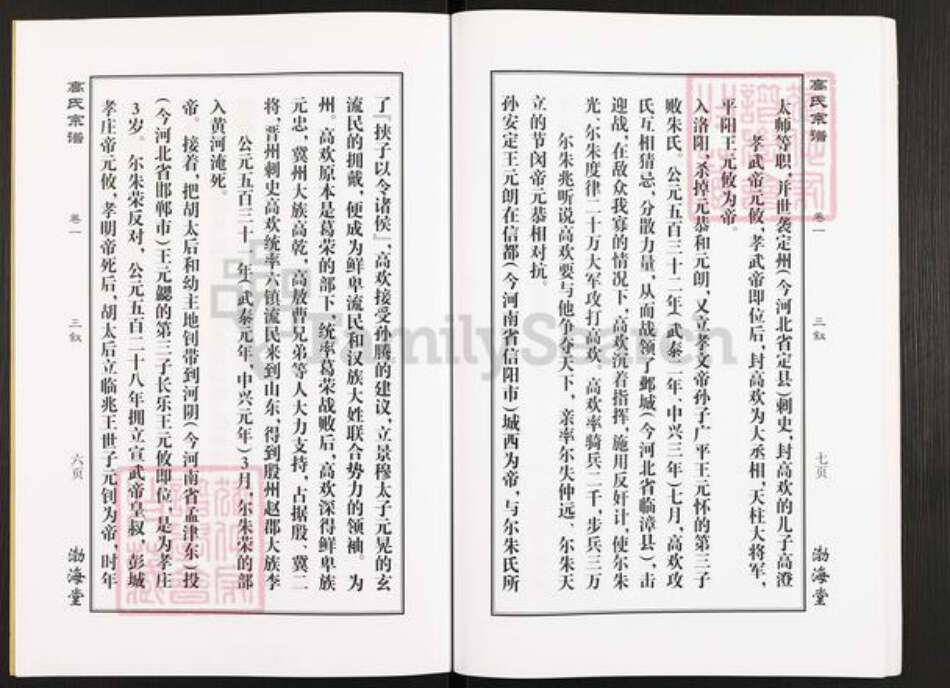 高氏宗谱 卷一 三叙 六页 渤海堂
孝庄帝元攸，孝明帝死后，胡太后立临兆王世子元钊为帝，时年
3岁。尔朱荣反对，公元五百二十八年拥立宣武帝皇叔，彭城
（今河北省邯郸市）王元勰的第三子长乐王元攸即位，是为孝庄
帝。接着，把胡太后和幼主地钊带到河阴（今河南省孟津东）投
入黄河淹死。
公元五百三十一年（武泰元年，中兴元年）3月，尔朱荣的部
将，晋州刺史高欢统率六镇流民来到山东，得到殷州赵郡大族李
元忠，冀州大族高乾，高敖曹兄弟等人大力支持，占据殷、冀二
州。高欢原本是葛荣的部下，统率葛荣战败后，高欢深得鲜卑族
流民的拥戴，便成为鲜卑流民和汉族大姓联合势力的领袖。为
了『挟子以令诸侯』，高欢接受孙腾的建议，立景穆太子元晃的玄
孙安定王元朗在信都（今河南省信阳市）城西为帝，与尔朱氏所
立的节闵帝元恭相对抗。
尔朱兆听说高欢要与他争夺天下，亲率尔失仲远、尔朱天
光、尔朱度律二十万大军攻打高欢。高欢率骑兵二千，步兵三万
迎战，在敌众我寡的情况下，高欢沉着指挥，施用反奸计，使尔朱
氏互相猜忌，分散力量，从而战领了邺城（今河北省临漳县），击
败朱氏。公元五百三十二年（武泰二年，中兴三年）七月，高欢攻
入洛阳，杀掉元恭和元朗，又立孝文帝孙子广平王元怀的第三子
平阳王元攸为帝。
孝武帝元攸，孝武帝即位后，封高欢为大丞相，天柱大将军，
太师等职，并世袭定州（今河北省定县）刺史，封高欢的儿子高澄
高氏宗谱 卷一 三叙 七页 渤海堂
FamilySearch